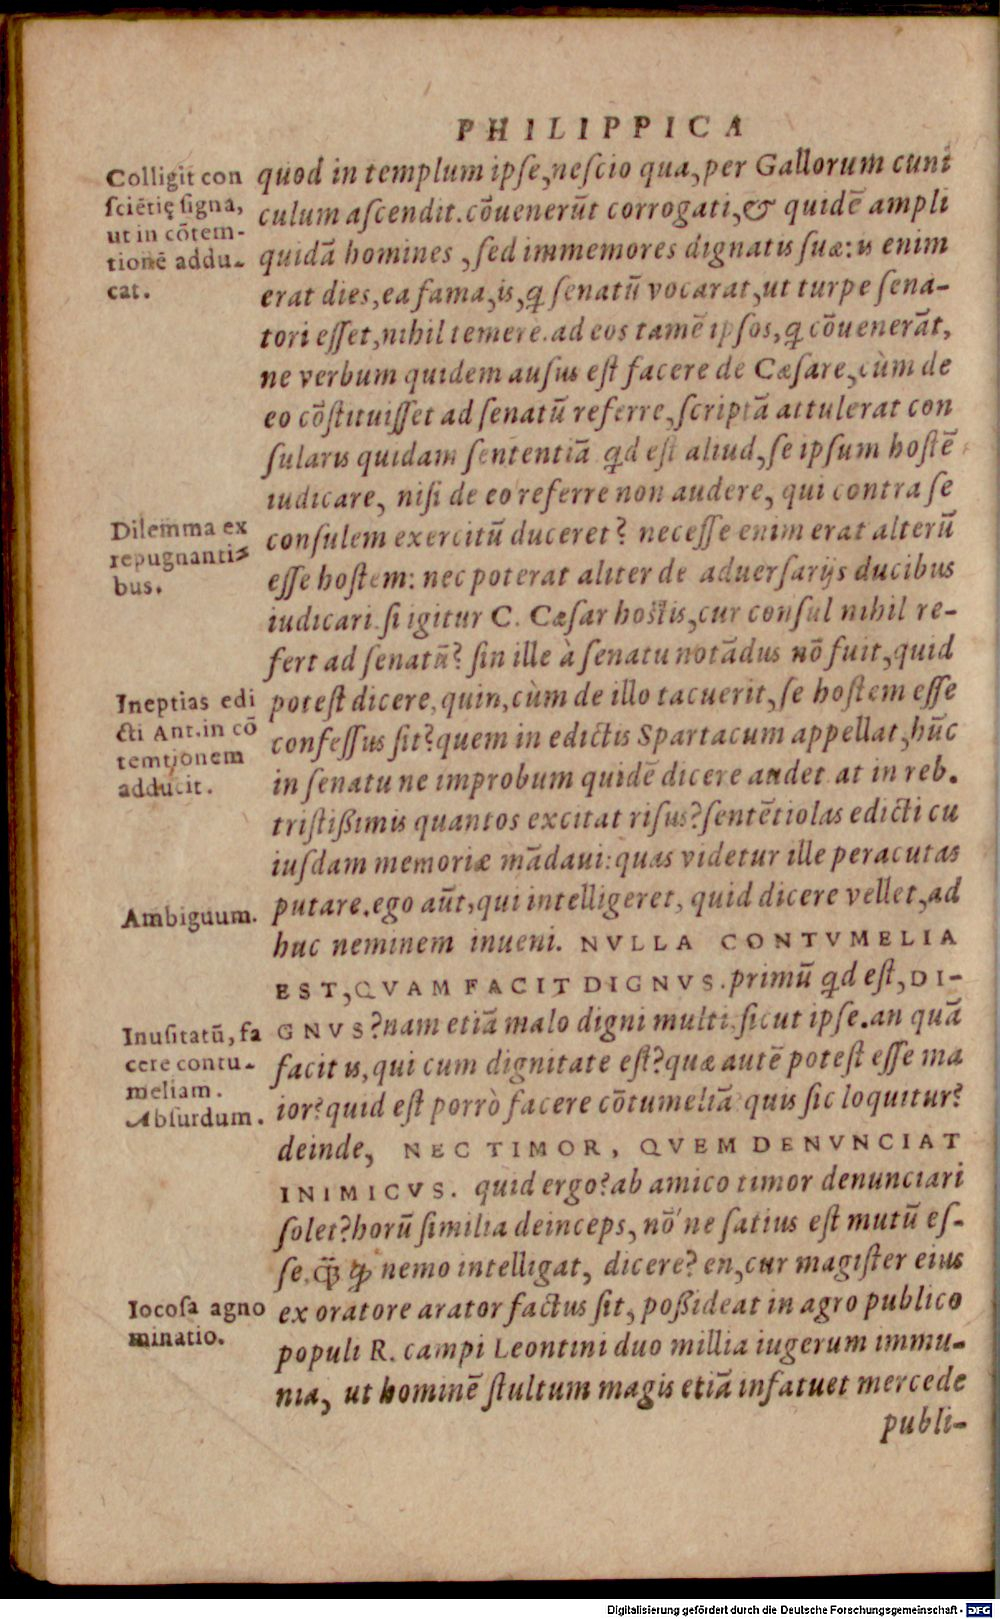 PHILIPPICA
Colligit con
ſciētię ſigna,
ut in cōtem-
tionē addu-
cat.
quod in templum ipſe, neſcio qua, per Gallorum cuni
culum aſcendit. cōuenerūt corrogati, & quidē ampli
quidā homines, ſed immemores dignatis ſuæ: is enim
erat dies, ea fama, is, ꝗ ſenatū vocarat, ut turpe ſena-
tori eſſet, nihil temere. ad eos tamē ipſos, ꝗ cōuenerāt,
ne verbum quidem auſus eſt facere de Cæſare, cùm de
eo cōſtituiſſet ad ſenatū referre, ſcriptā attulerat con
ſularis quidam ſententiā ꝗd eſt aliud, ſe ipſum hoſtē
iudicare, niſi de eo referre non audere, qui contra ſe
Dilemma ex
repugnanti-
bus.
conſulem exercitū duceret? neceſſe enim erat alterū
eſſe hoſtem: nec poterat aliter de aduerſarijs ducibus
iudicari. ſi igitur C. Cæſar hoſtis, cur conſul nihil re-
fert ad ſenatū? ſin ille à ſenatu notādus nō fuit, quid
Ineptias edi
cti Ant. in cō
temtionem
adducit.
poteſt dicere, quin, cùm de illo tacuerit, ſe hoſtem eſſe
confeſſus ſit? quem in edictis Spartacum appellat, hūc
in ſenatu ne improbum quidē dicere audet. at in reb.
triſtißimis quantos excitat riſus? ſentētiolas edicti cu
iuſdam memoriæ mādaui: quas videtur ille peracutas
Ambiguum.
putare. ego aūt, qui intelligeret, quid dicere vellet, ad
huc neminem inueni. NVLLA CONTVMELIA
EST, QVAM FACIT DIGNVS. primū ꝗd eſt, DI-
Inuſitatū, fa
cere contu-
meliam.
Abſurdum.
GNVS? nam etiā malo digni multi, ſicut ipſe. an quā
facit is, qui cum dignitate eſt? quæ autē poteſt eſſe ma
ior? quid eſt porrò facere cōtumeliā quis ſic loquitur?
deinde, NEC TIMOR, QVEM DENVNCIAT
INIMICVS. quid ergo? ab amico timor denunciari
ſolet? horū ſimilia deinceps, nō ne ſatius eſt mutū eſ-
ſe, ꝙ̃ ꝙ nemo intelligat, dicere? en, cur magiſter eius
Iocoſa agno
minatio.
ex oratore arator factus ſit, poßideat in agro publico
populi R. campi Leontini duo millia iugerum immu-
nia, ut hominē ſtultum magis etiā infatuet mercede
publi-
Digitalisierung gefördert durch die Deutsche Forschungsgemeinschaft - DFG